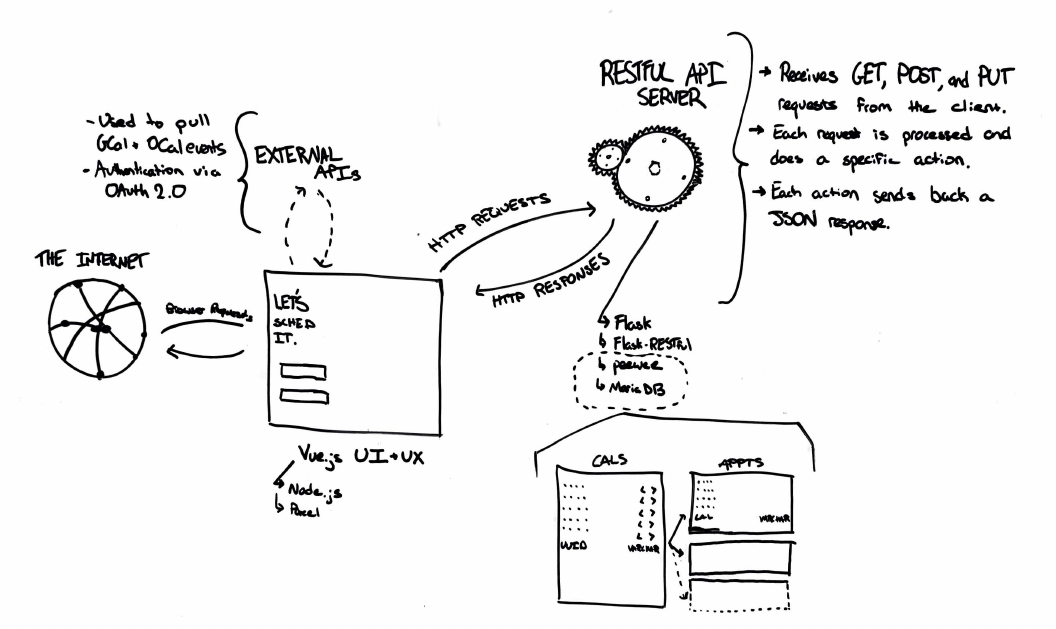 RESTFUL API
SERVER
→ Receives GET, POST, and PUT
requests from the client.
→ Each request is processed and
does a specific action.
→ Each action sends back a
JSON response.
- Used to pull
GCal + OCal events
- Authentication via
OAuth 2.0
EXTERNAL
APIs
HTTP REQUESTS
HTTP RESPONSES
THE INTERNET
Browser Requests
LET'S
SCHED
IT.
Vue.js UI + UX
↳ Node.js
↳ Parcel
↳ Flask
↳ Flask-RESTful
↳ peewee
↳ MariaDB
CALS
UUID VARCHAR
APPTS
CAL VARCHAR